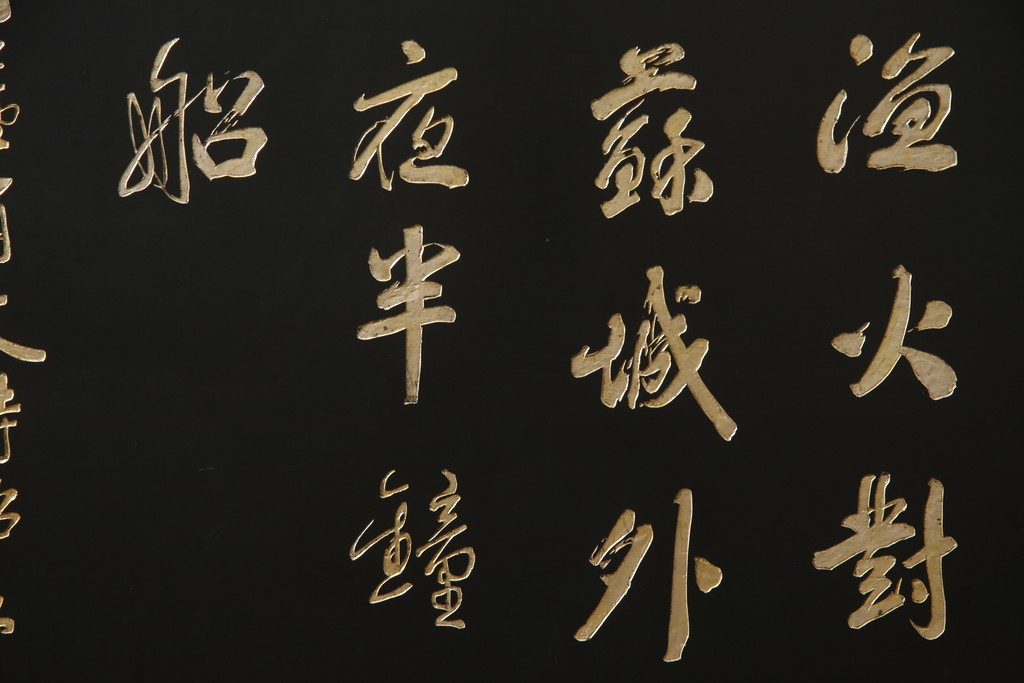 漁火對
蘇城外
夜半鐘
船